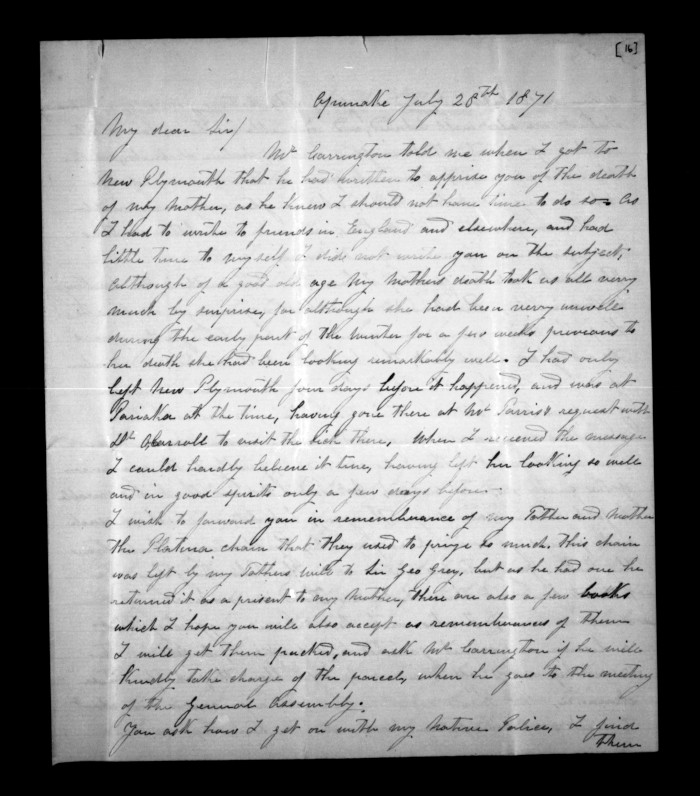 [16]
Opunake July 28th 1871
My dear Sir/
Mr Carrington told me when I got to
New Plymouth that he had written to apprise you of the death
of my Mother, as he knew I should not have time to do so as
I had to write to friends in England and elsewhere, and had
little time to myself I did not write you on the subject;
although of a good old age my Mothers death took us all very
much by surprise, for although she had been very unwell
during the early part of the winter for a few weeks previous to
her death she had been looking remarkably well. I had only
left New Plymouth four days before it happened, and was at
Pariaka at the time, having gone there at Mr Parris's request with
Dr OCarroll to visit the sick there, When I received the message
I could hardly believe it true, having left her looking so well
and in good spirits only a few days before.
I wish to forward you in remembrance of my Father and Mother
the Platina chain that they used to prize so much, this chain
was left by my Fathers will to Sir Geo Grey, but as he had one he
returned it as a present to my Mother, there are also a few books
which I hope you will also accept as remembrances of them
I will get them packed, and ask Mr Carrington if he will
kindly take charge of the parcel, when he goes to the meeting
of the General Assembly.
You ask how I get on with my Native Police, I find
them